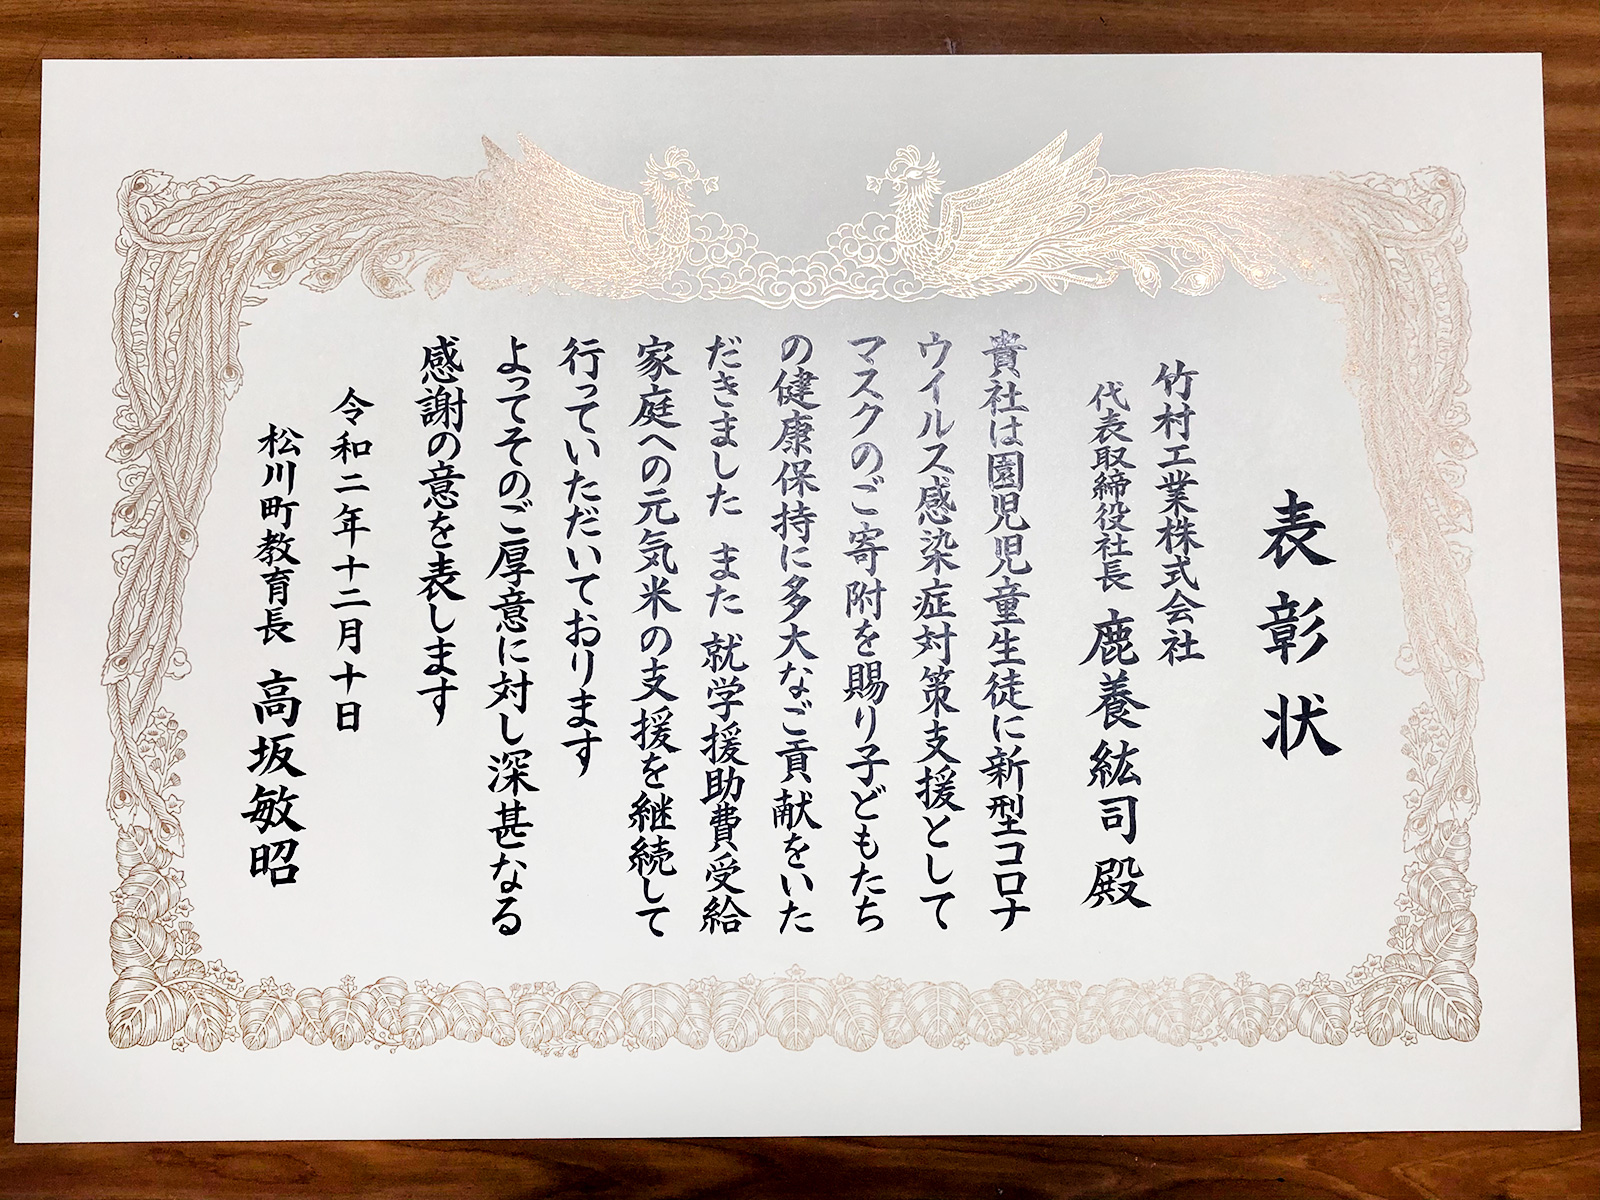 表彰状
竹村工業株式会社
代表取締役社長 鹿養紘司 殿
貴社は園児児童生徒に新型コロナ
ウイルス感染症対策支援として
マスクのご寄附を賜り子どもたち
の健康保持に多大なご貢献をいた
だきました また 就学援助費受給
家庭への元気米の支援を継続して
行っていただいております
よってそのご厚意に対し深甚なる
感謝の意を表します
令和二年十二月十日
松川町教育長 高坂敏昭